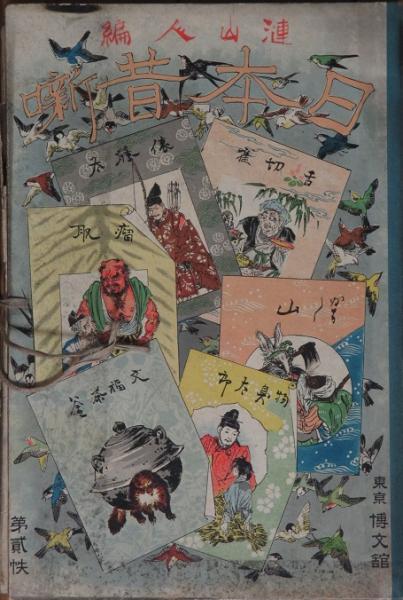 漣山人編
日本昔噺
舌切雀
俵藤太
瘤取
かち〳〵山
物臭太郎
文福茶釜
東京 博文舘
第貳帙